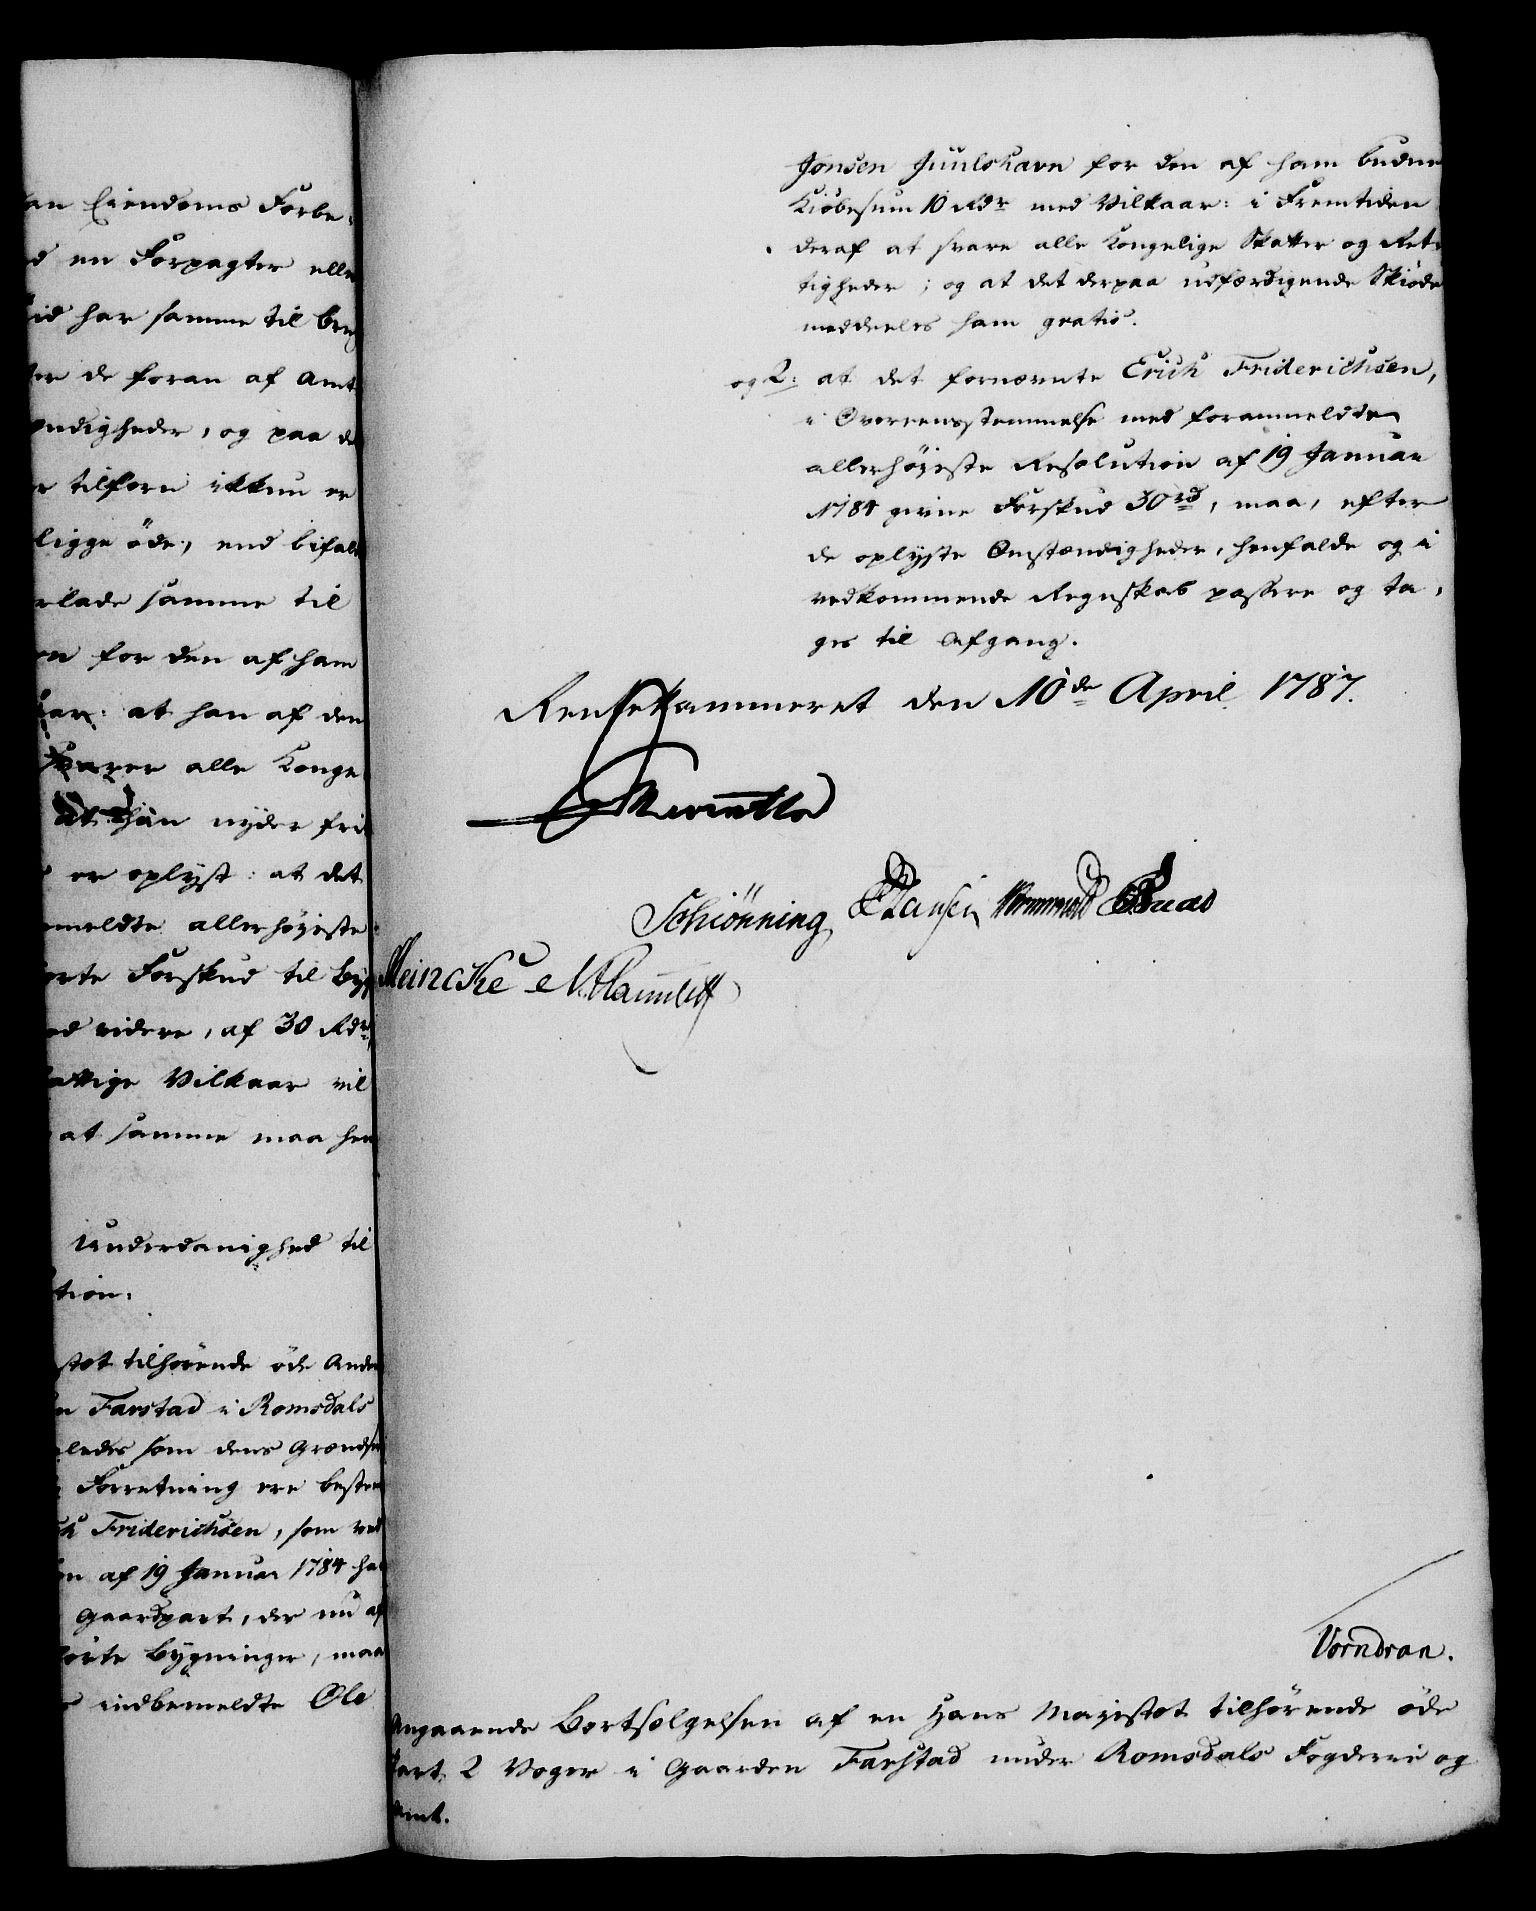 an Eiendoms Forbe-
d en Forpagter elle
tid har samme til brug
ter de foran af Amt
ændigheder, og paa de
tilforn ikkun er
ligge öde, end bifald
rlade samme til
on for den af ham
aar: at han af den
svarer alle Konge
at han nyder frie
er oplyst: at det
meldte allerhöyeste
Forskud til Byg
ed videre, af 30 Rdr,
attige Vilkaar vil
at samme maa hen
Underdanighed til
tion.
stæt tilhörende öde Andeel
n Farstad i Romsdals
ledes som dens Grændser
Forretning ere bestem
ch Friderichsen, som ved
on af 19 Januar 1784 ha
Gaardpart, der nu af
Bygninger, maa
indbemeldte Ole
Jonsen Juulshavn for den af ham budne
Kiöbesum 10 Rdr med Vilkaar: i Fremtiden
deraf at svare alle Kongelige Skatter og Ret-
tigheder; og at det derpaa udfærdigende Skiöde
meddeeles ham gratis.
og 2: at det fornævnte Erich Friderichsen,
i Overeensstemmelse med forammeldte
allerhöyeste Resolution af 19 Januar
1784 givne Forskud 30 rd, maa, efter
de oplyste Omstændigheder, henfalde og i
vedkommende Regnskab passere og ta-
ges til Afgang.
Rentekammeret den 10de April 1787.
Schiönning Hansen
Meincke
Vorndran.
Angaaende Bortsælgelsen af en Hans Mayestæt tilhörende öde
Part 2 Voger i Gaarden Farstad under Romsdals Fogderie og
Amt.